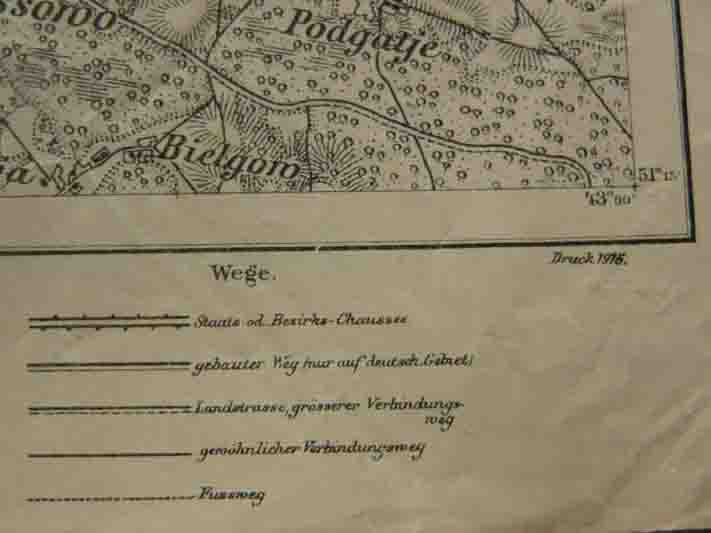 ssowo
Podgatje
Bielgoro
a.
51° 15'
43° 00'
Druck 1915.
Wege.
Staats od. Bezirks-Chaussee
gebauter Weg (nur auf deutsch. Gebiet)
Landstrasse, grösserer Verbindungs-
weg
gewöhnlicher Verbindungsweg
Fussweg